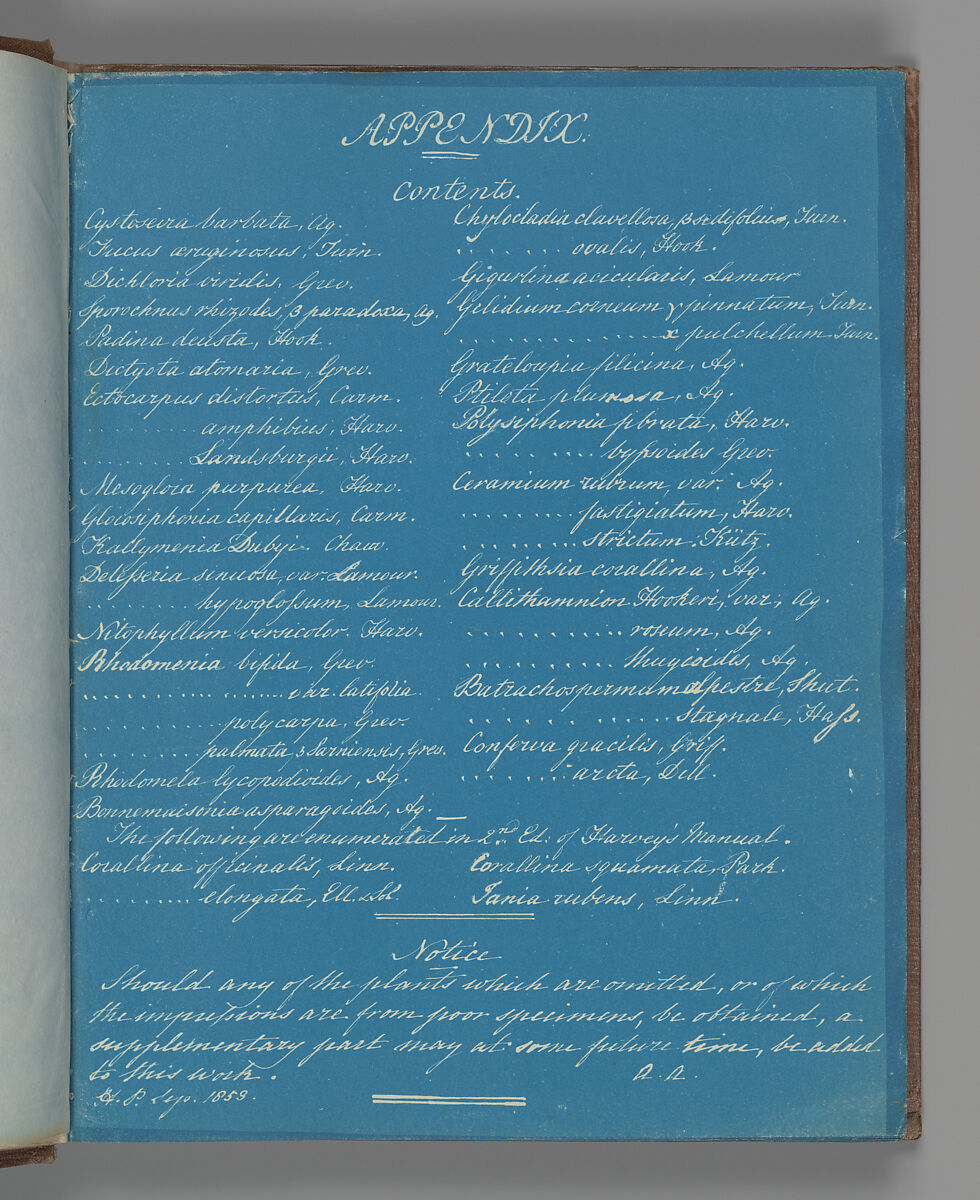 APPENDIX.
Contents.
Cystoseira barbata, Ag.
Fucus æruginosus, Turn.
Dichloria viridis, Grev.
Sporochnus rhizodes, β paradoxa, Ag.
Padina deusta, Hook.
Dictyota atomaria, Grev.
Ectocarpus distortus, Carm.
. . . . . . . . . amphibius, Harv.
. . . . . . . . . Landsburgii, Harv.
Mesogloia purpurea, Harv.
Gloiosiphonia capillaris, Carm.
Kallymenia Dubyi. Chauv.
Delesseria sinuosa, var. Lamour.
. . . . . . . . . hypoglossum, Lamour.
Nitophyllum versicolor. Harv.
Rhodomenia bifida, Grev.
. . . . . . . . . . . . . . . var. latifolia.
. . . . . . . . . . . polycarpa, Grev.
. . . . . . . . . palmata, β Sarniensis, Grev.
Rhodomela lycopodioides, Ag.
Bonnemaisonia asparagoides, Ag.
Chylocladia clavellosa, β sedifolius, Turn.
. . . . . . . ovalis, Hook.
Gigartina acicularis, Lamour
Gelidium corneum γ pinnatum, Turn.
. . . . . . . . . . . . . x pulchellum Turn.
Grateloupia filicina, Ag.
Ptilota plumosa, Ag.
Polysiphonia fibrata, Harv.
. . . . . . . . . byssoides Grev.
Ceramium rubrum, var. Ag.
. . . . . . . . fastigiatum, Harv.
. . . . . . . . strictum. Kütz.
Griffithsia corallina, Ag.
Callithamnion Hookeri, var, Ag.
. . . . . . . . . . . roseum, Ag.
. . . . . . . . . . thuyoides, Ag.
Batrachospermum alpestre, Shut.
. . . . . . . . . . . . . stagnale, Hass.
Conferva gracilis, Griff.
. . . . . . . arcta, Dill.
The following are enumerated in 2nd. Ed: of Harvey's Manual.
Corallina officinalis, Linn.
. . . . . . . . . elongata, Ell. & Sol.
Corallina squamata, Park.
Jania rubens, Linn.
Notice
Should any of the plants which are omitted, or of which
the impressions are from poor specimens, be obtained, a
supplementary part may at some future time, be added
to this work.
A. A.
H. P. Sep. 1853.